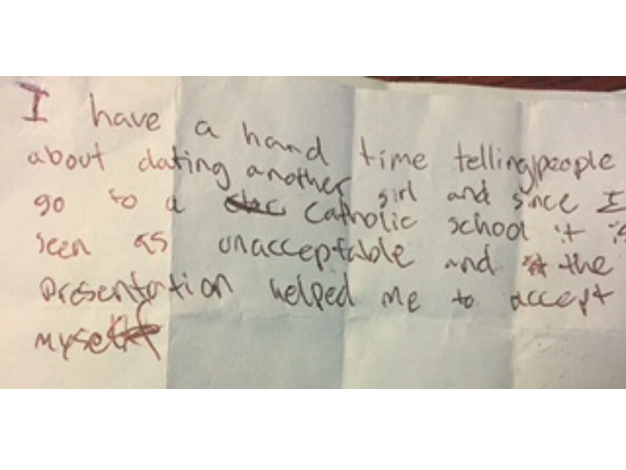 I have a hand time telling people
about dating another girl and since I
go to a Catholic school it is
seen as unacceptable and the
presentation helped me to accept
myself